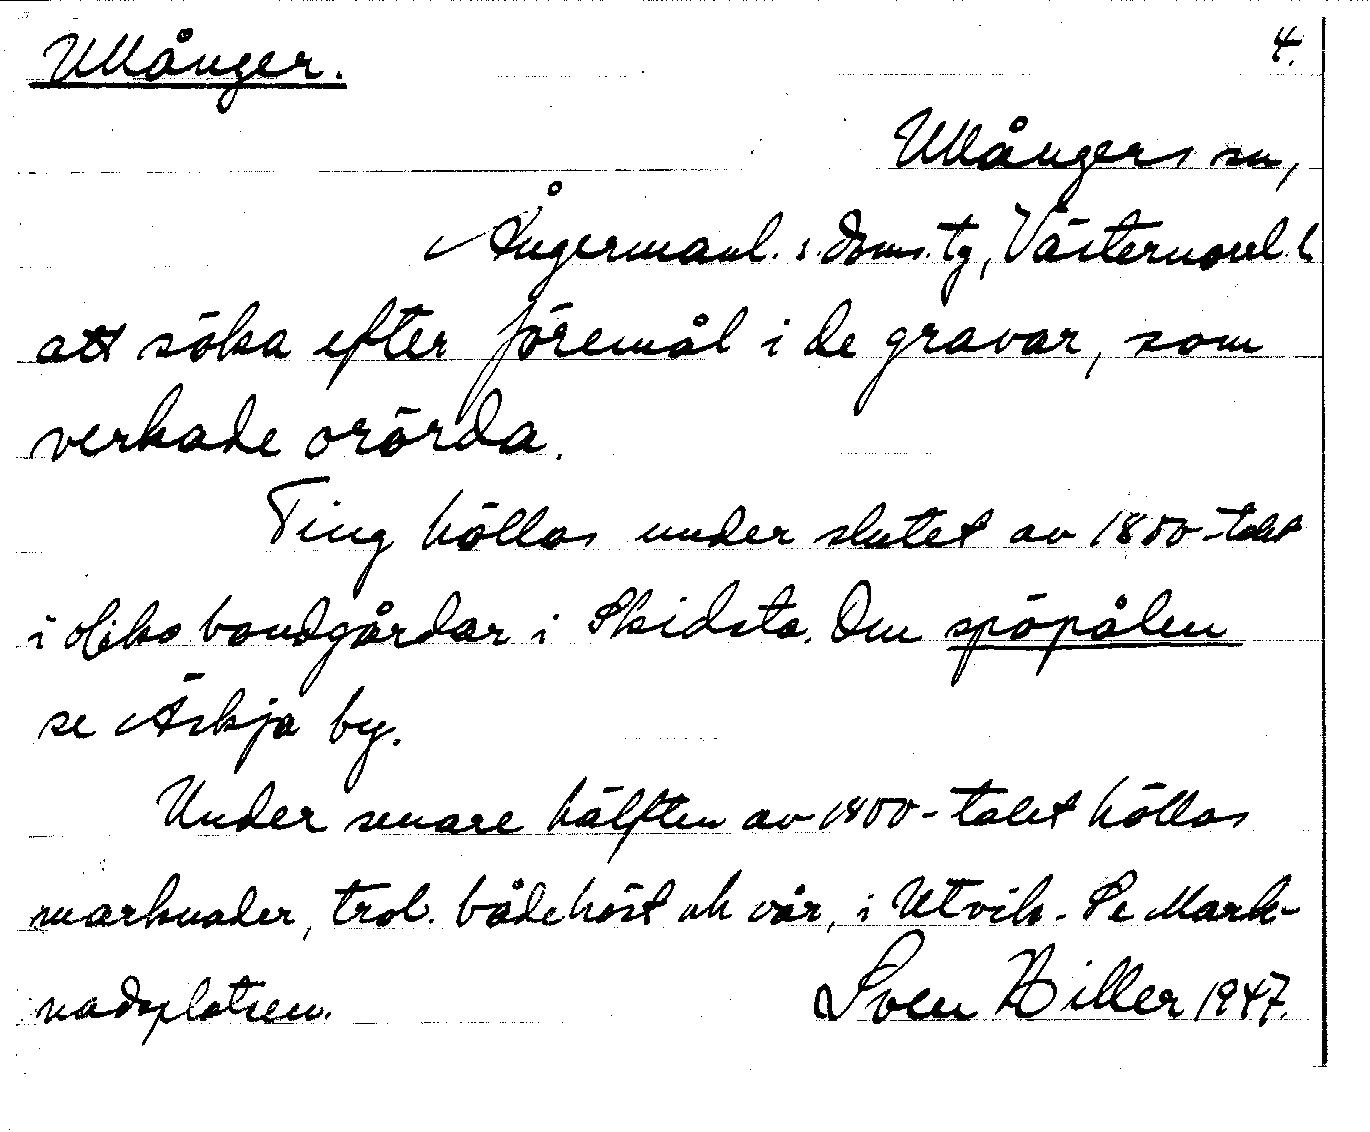 Ullånger.
4.
Ullångers sn,
Ångermanl. s. doms. tg, Västernorrl. l
att söka efter föremål i de gravar, som
verkade orörda.
Ting höllos under slutet av 1800-talet
i olika bondgårdar i Skidsta. Om spöpålen
se Äskja by.
Under senare hälften av 1800-talet höllos
marknader, trol. både höst och vår, i Utvik. Se Mark-
nadsplatsen.
Sven Hiller 1947.